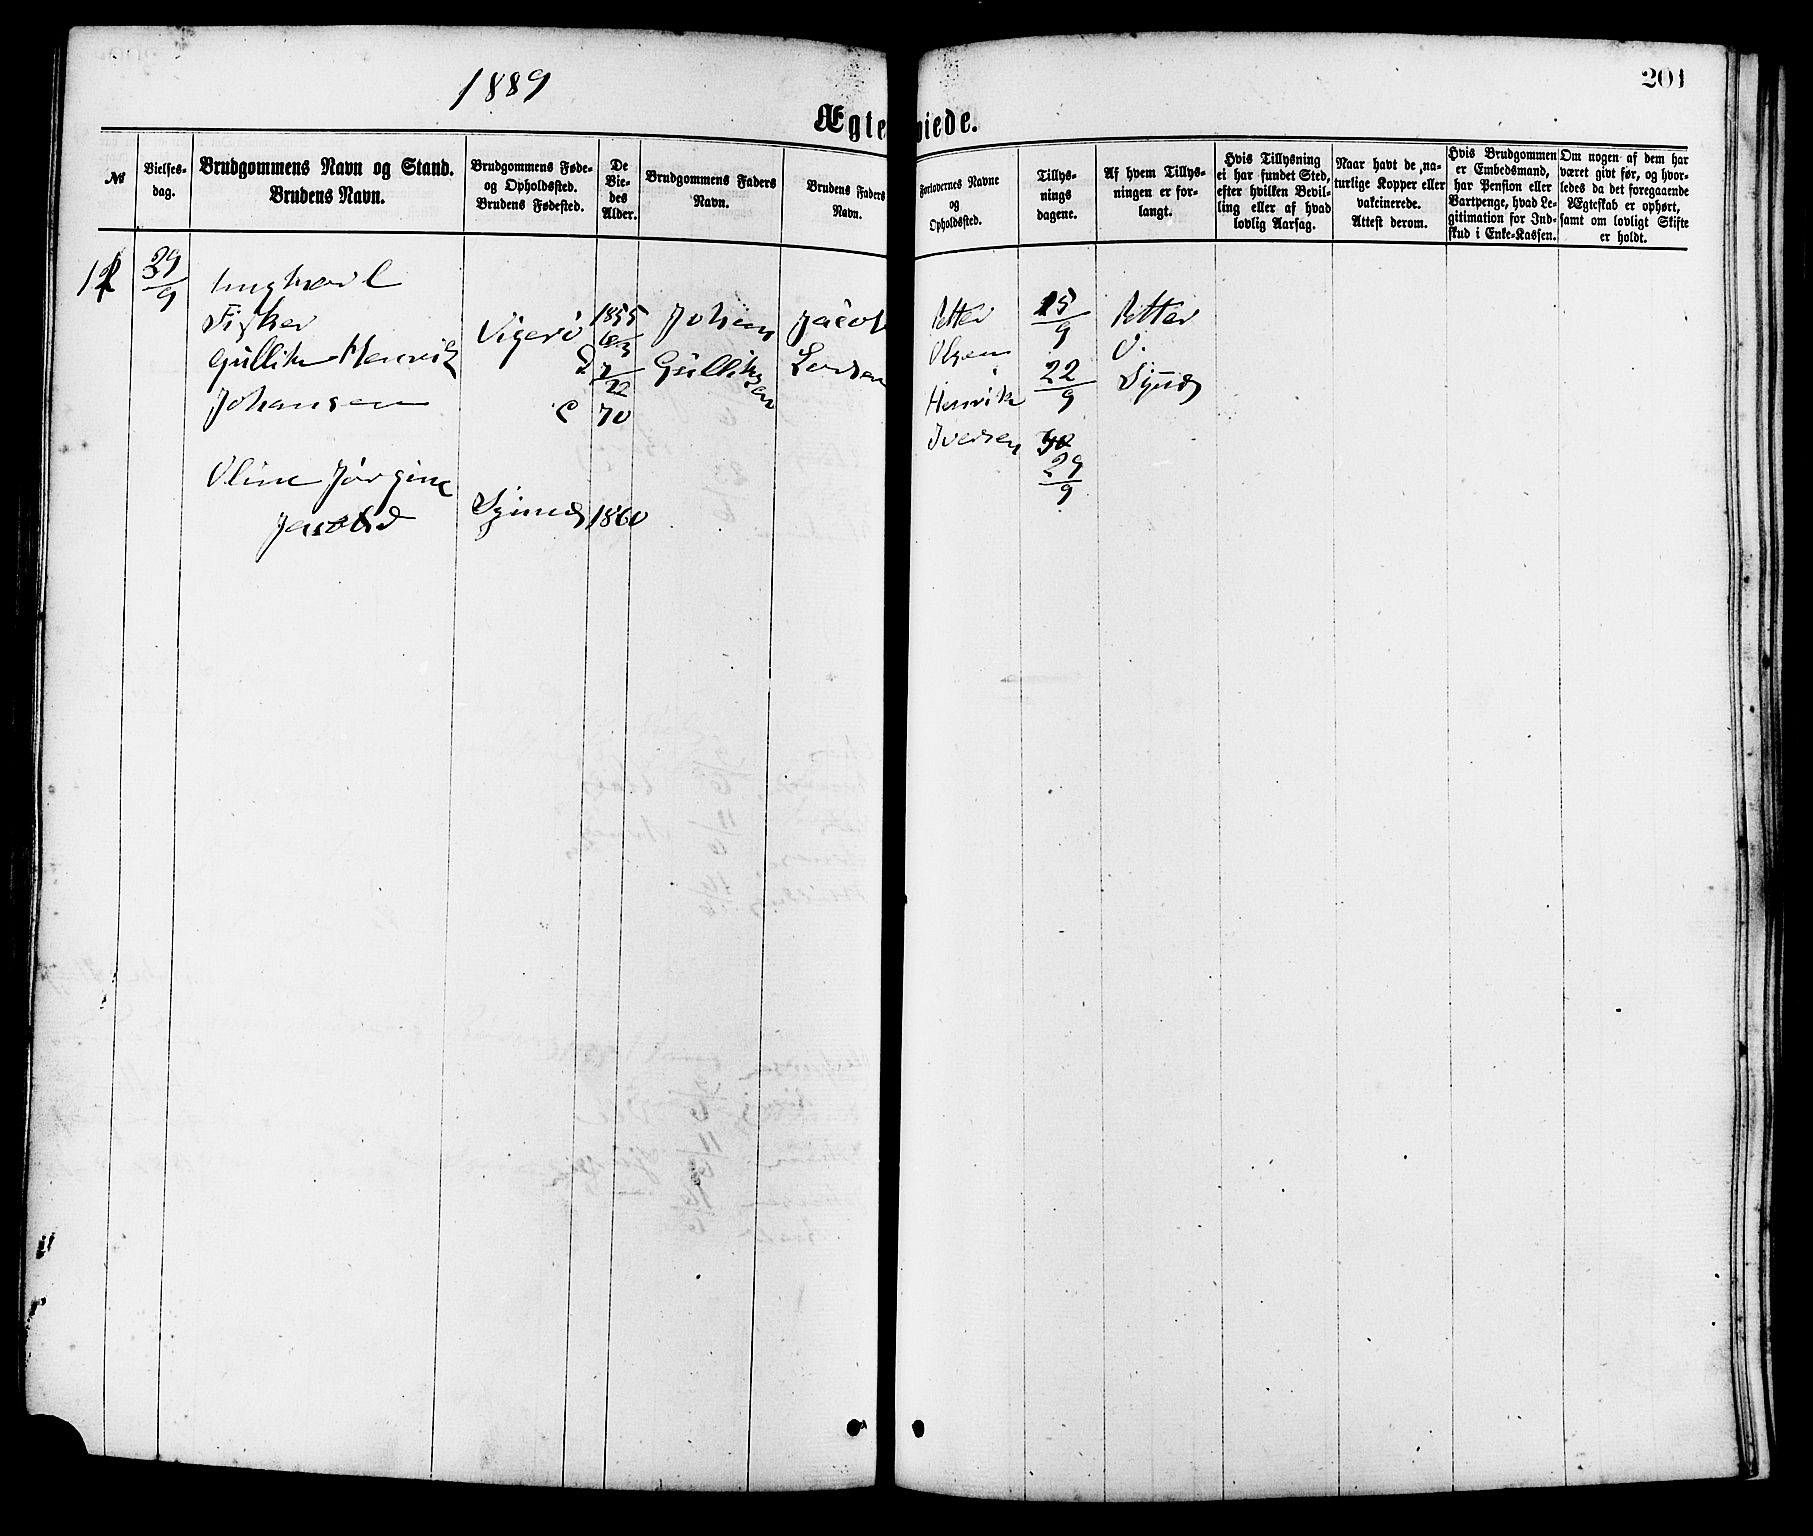 1889
201
Ægteviede.
№
Vielses-
dag.
Brudgommens Navn og Stand.
Brudens Navn.
Brudgommens Føde-
og Opholdssted.
Brudens Fødested.
De
Vie-
des
Alder.
Brudgommens Faders
Navn.
Brudens Faders
Navn.
Forlovernes Navne
og
Opholdssted.
Tillys-
nings
dagene.
Af hvem Tillys-
ningen er for-
langt.
Hvis Tillysning
ei har fundet Sted,
efter hvilken Bevil-
ling eller af hvad
lovlig Aarsag.
Naar havt de „na-
turlige Kopper eller
vakcinerede.
Attest derom.
Hvis Brudgommen
er Embedsmand,
har Pension eller
Vartpenge, hvad Le-
gitimation for Ind-
skud i Enke-Kassen.
Om nogen af dem har
været givt før, og hvor-
ledes da det foregaaende
Ægteskab er ophørt,
samt om lovligt Skifte
er holdt.
29/9
Ungkarl
Fisker
Gullik Henrik
Johansen
Vigerø
1855
70
Johan
Gulliksen
Jacob
Larsen
Oline Jørgine
Jacobsd
1860
Petter
Olsen
Henrik
Iversen
15/9
22/9
29/9
Petter
O.